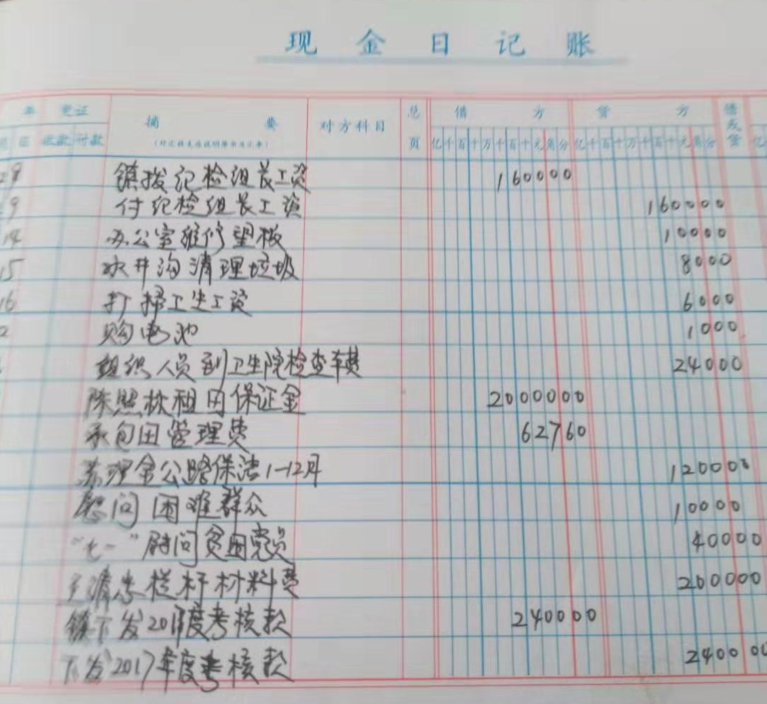 现金日记账
年 凭证 摘要 对方科目 总页 借方 贷方 借或贷
收款 付款 亿千百十万千百十元角分 亿千百十万千百十元角分
28 镇拨纪检组长工资 160000
9 付纪检组长工资 160000
14 办公室维修望板 10000
15 水井沟清理垃圾 8000
16 打扫卫生工资 6000
2 购电池 1000
组织人员到卫生院检查车费 24000
陈照 租田保证金 2000000
承包田管理费 62760
苏理金公路保洁1-12月 120000
慰问困难群众 10000
"七一"慰问贫困党员 40000
栏杆材料费 200000
镇下发2017年度考核款 240000
下发2017年度考核款 240000